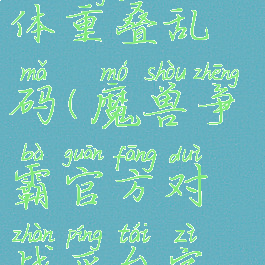 体重叠乱
mǎ mó shòu zhēng
码(魔兽争
bà guān fāng duì
霸官方对
zhàn píng tái zì
战平台字